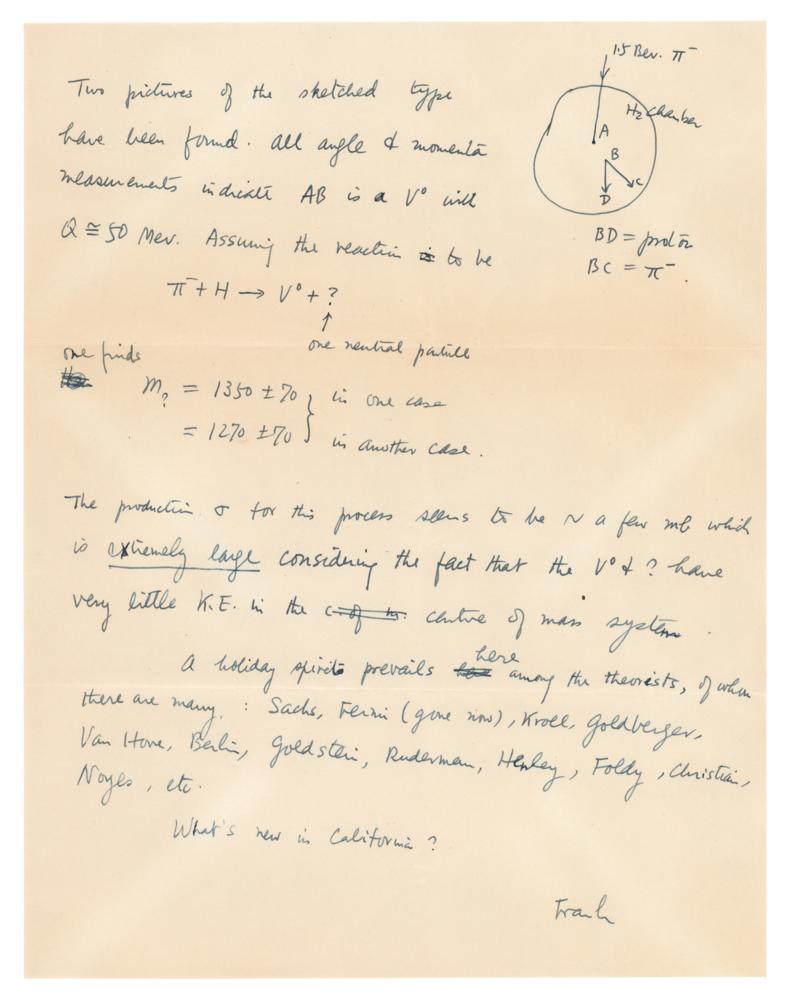 1.5 Bev. π⁻
H₂ chamber
A
B
C
D
BD = proton
BC = π⁻.
Two pictures of the sketched type
have been found. All angle & momenta
measurements indicate AB is a V⁰ with
Q ≅ 50 Mev. Assuming the reaction is to be
π⁻ + H → V⁰ + ?
↑
one neutral particle
one finds
m? = 1350 ± 70 } in one case
= 1270 ± 70 } in another case.
The production σ for this process seems to be ~ a few mb which
is extremely large considering the fact that the V⁰ & ? have
very little K.E. in the c. of m. centre of mass system.
A holiday spirit prevails here among the theorists, of whom
there are many : Sachs, Fermi (gone now), Kroll, Goldberger,
Van Hove, Berlin, Goldstein, Ruderman, Henley, Foldy, Christian,
Noyes, etc.
What's new in California?
Frank